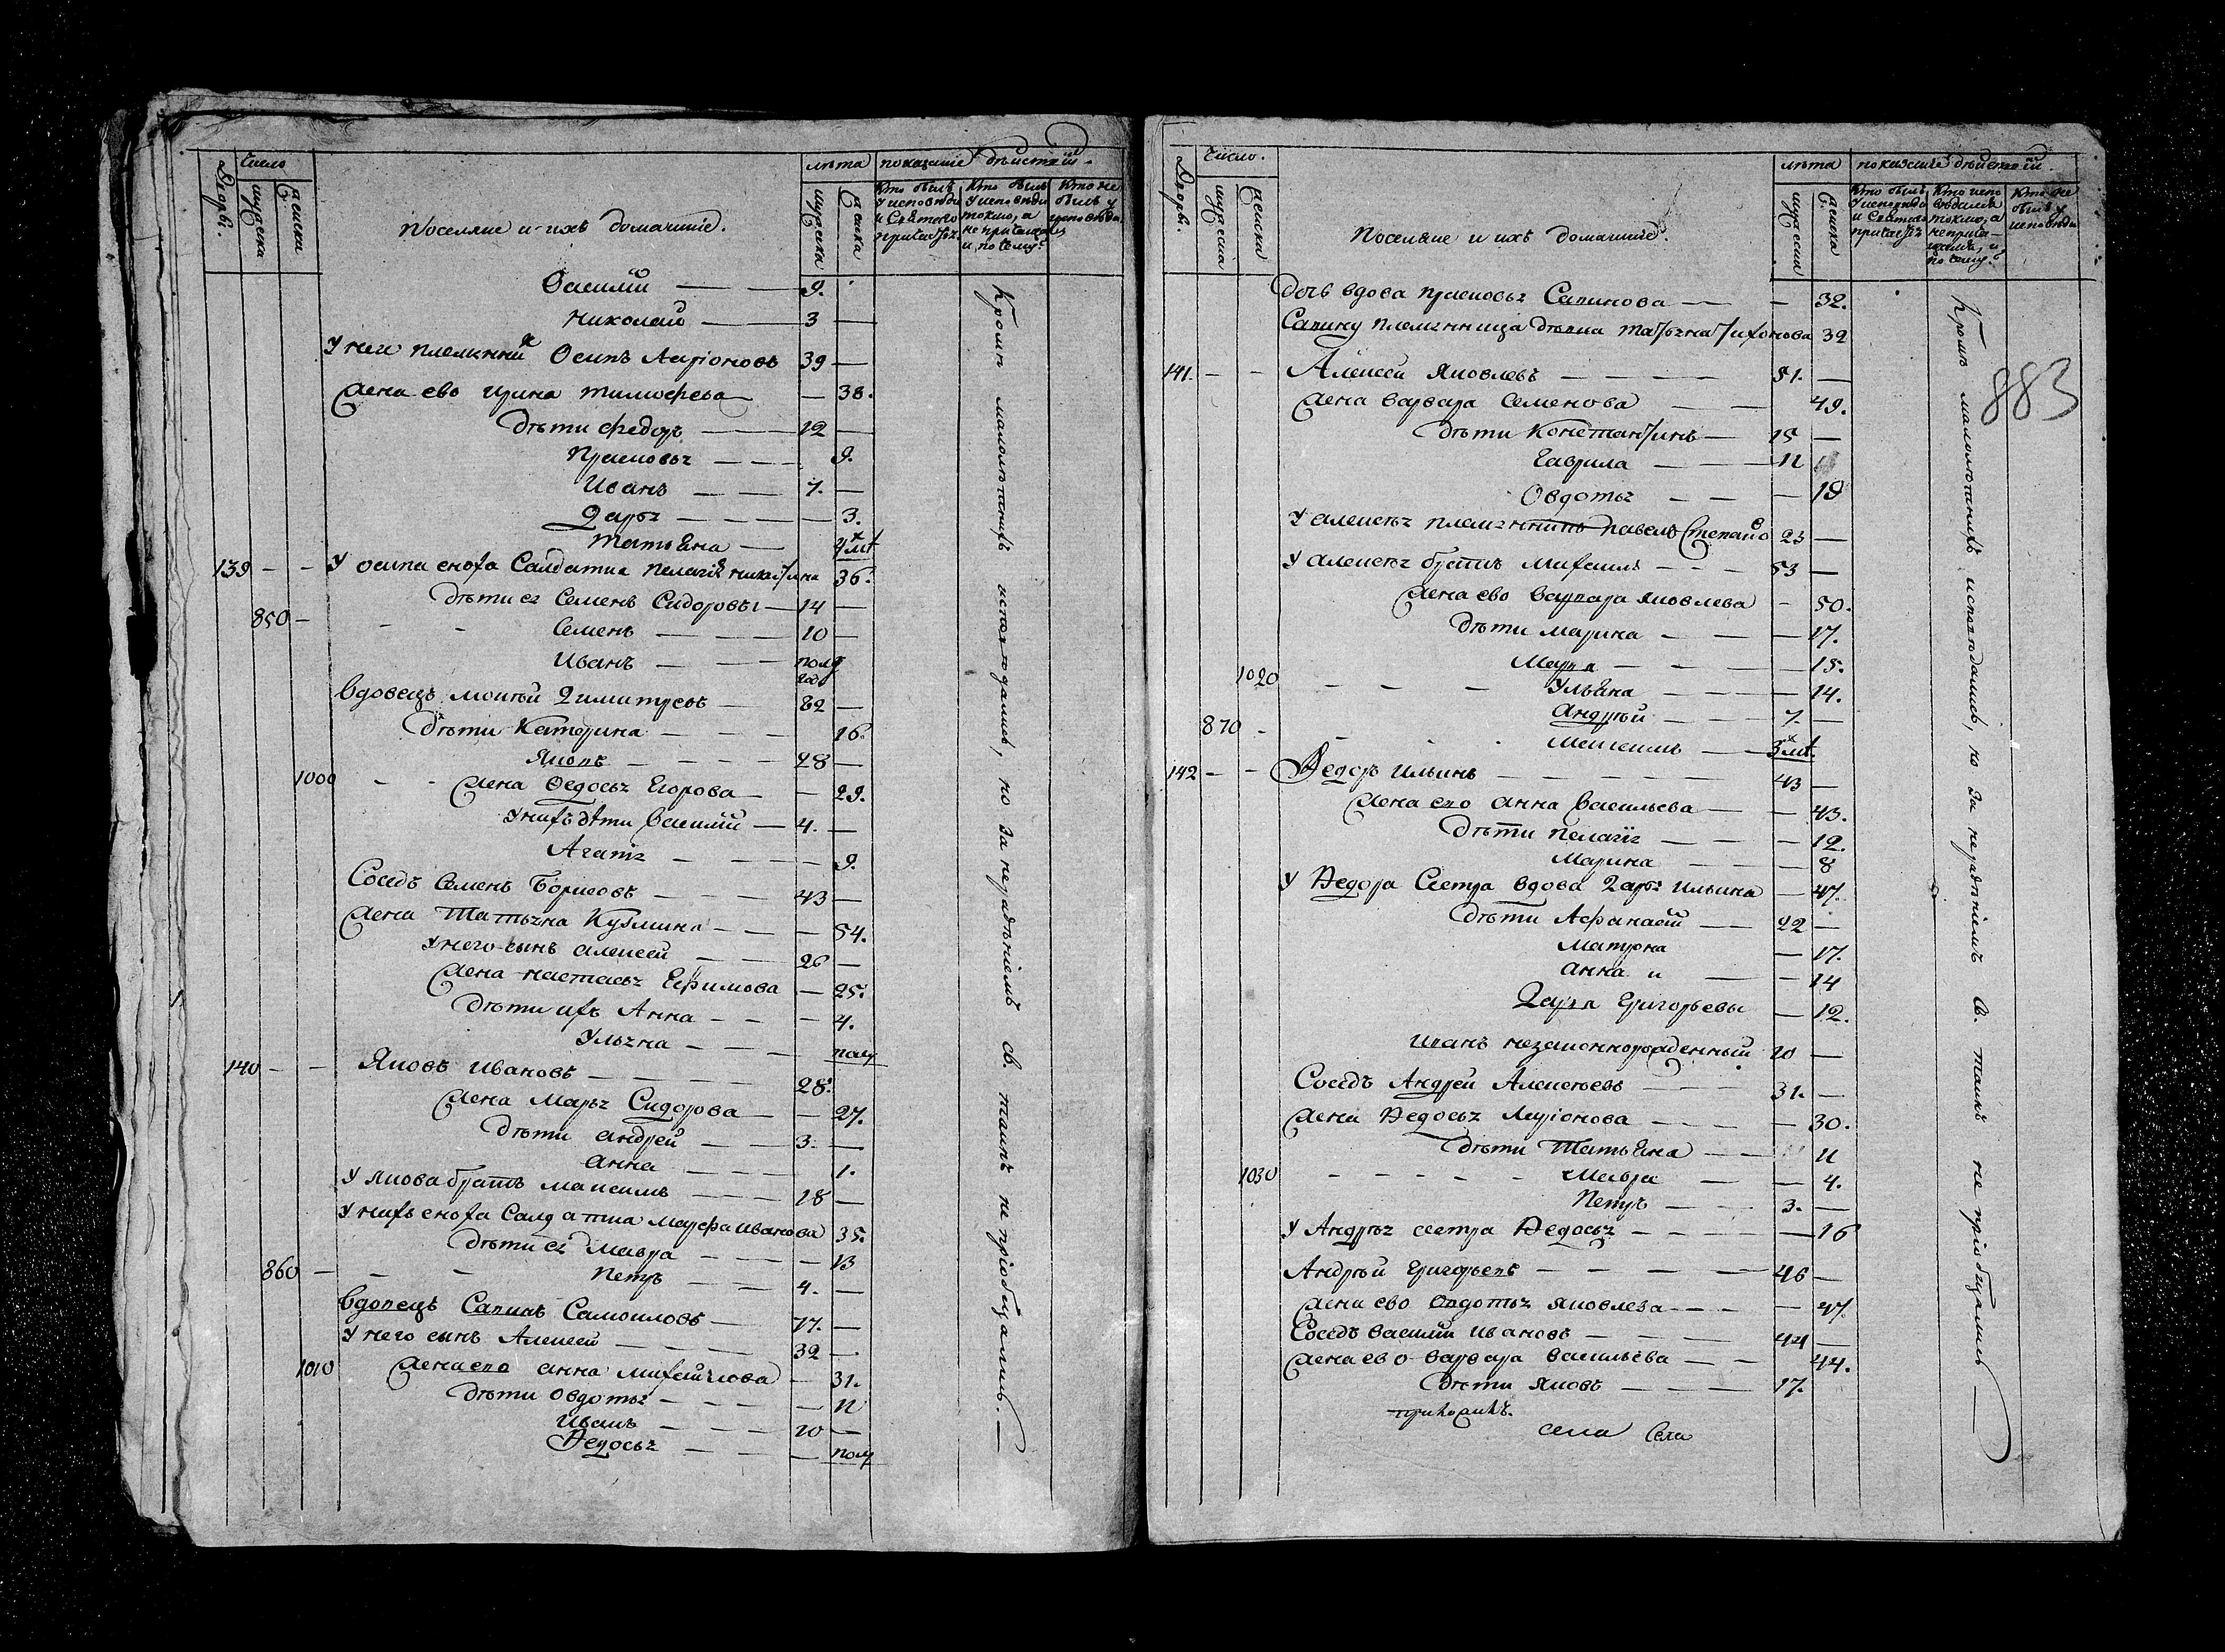 Число
лѣта показаніе дѣйствій.
Дворы.
мужеска
женска
Поселяне и ихъ домашніе.
мужеска
женска
Кто былъ у исповѣди и Святаго причастія.
Кто былъ у исповѣди токмо, а не причащался и, по чему?
Кто не былъ у исповѣди.
Василій — — 9.
Николай — 3 —
У него племянникъ Осипъ Ларіоновъ 39 —
Жена ево Ирина Тимофеева — 38.
Дѣти Федоръ — 12 —
Прасковья — — 9.
Иванъ — — 7. —
Дарья — — — 3.
Татьяна —
139 — — У осипа сноха Салдатка Пелагія Никитина 36.
Дѣти ея Семенъ Сидоровы — 14 —
850 — - - Семенъ — — — 10 —
Иванъ — — — полу года
Вдовецъ Мокѣй Димитревъ — 82 —
Дѣти Катерина — — — 16.
Яковъ — — — — 48 —
1000 - - Жена Федосья Егорова — — 29.
У нихъ дѣти Василій — 4. —
Агапія — — — 9.
Соседъ Семенъ Борисовъ — — — 43 —
Жена Татьяна Кузмина — — — 54.
У него сынъ Алексей — — 26 —
Жена настасья Ефимова — 25.
Дѣти ихъ Анна — — — 4.
Ульяна — — — полу
140 — — Яковъ Ивановъ — — — — 28.
Жена Марья Сидорова — — 27.
Дѣти Андрей — — 3. —
Анна — — — 1.
У Якова братъ Максимъ — — — 18 —
У нихъ сноха Салдатка Марфа Иванова 35.
Дѣти ея Мавра — — — 13
860 — — — Петръ — — 4. —
Вдовецъ Савинъ Самоиловъ — 77. —
У него сынъ Алексей — — — — 32 —
1010 Жена ево Анна Михайлова — 31.
Дѣти Овдотья — — — — 11
Иванъ — — — 10 —
Ѳедосья — — — полу
Кромѣ малолѣтнихъ исповѣдались, но за нерадѣніемъ св. таинъ не пріобщались. —
Число.
лѣта показаніе дѣйствій.
Дворы.
мужеска
женска
Поселяне и ихъ домашніе.
мужеска
женска
Кто былъ у исповѣди и Святаго причастія
Кто исповѣдался токмо, а не причащался, и по чему?
Кто не былъ у исповѣди
883
Дочь вдова Прасковья Савинова — — — 32.
Савину племянница Дѣвка Татьяна Тихонова 32
141. — — Алексей Яковлевъ — — — — 51. —
Жена Варвара Семенова — — 49.
Дѣти Константинъ — 15 —
Гаврила — — — 11
Овдотья — — — 18
У Алексея племянникъ Павелъ Степановъ 23 —
У Алексея братъ Михаилъ — — — 53 —
Жена ево Варвара Яковлева — 50.
Дѣти Марина — — — 17.
Марья — — — — 15.
1020 — — — Ульяна — — — 14.
Андрѣй — — — 7. —
870 - - - -
142 — — Ѳедоръ Ильинъ — — — — — 43 —
Жена ево Анна Васильева — — 43.
Дѣти Пелагія — — — 12.
Марина — — — 8
У Ѳедора Сестра вдова Дарья Ильина — 47.
Дѣти Афанасій — — 22 —
Матрона — 17.
Анна и — — 14
Дарья Григорьевы — 12.
Иванъ незаконнорожденный 10 —
Соседъ Андрей Алексѣевъ — — — 31. —
Жена Ѳедосья Ларіонова — — — — 30.
Дѣти Татьяна — — 11
1030 - - - - - Мавра — — 4.
Петръ — — 3. —
У Андрѣя сестра Ѳедосья — — — — — 16
Андрѣй Григорьевъ — — — — — 46 —
Жена ево Овдотья Яковлева — — — — 47.
Соседъ Василій Ивановъ — — — 44 —
Жена ево Варвара Васильева — — 44.
Дѣти Яковъ — — — 17.
села Села
Кромѣ малолѣтнихъ исповѣдались, но за нерадѣніемъ св. таинъ не пріобщались —